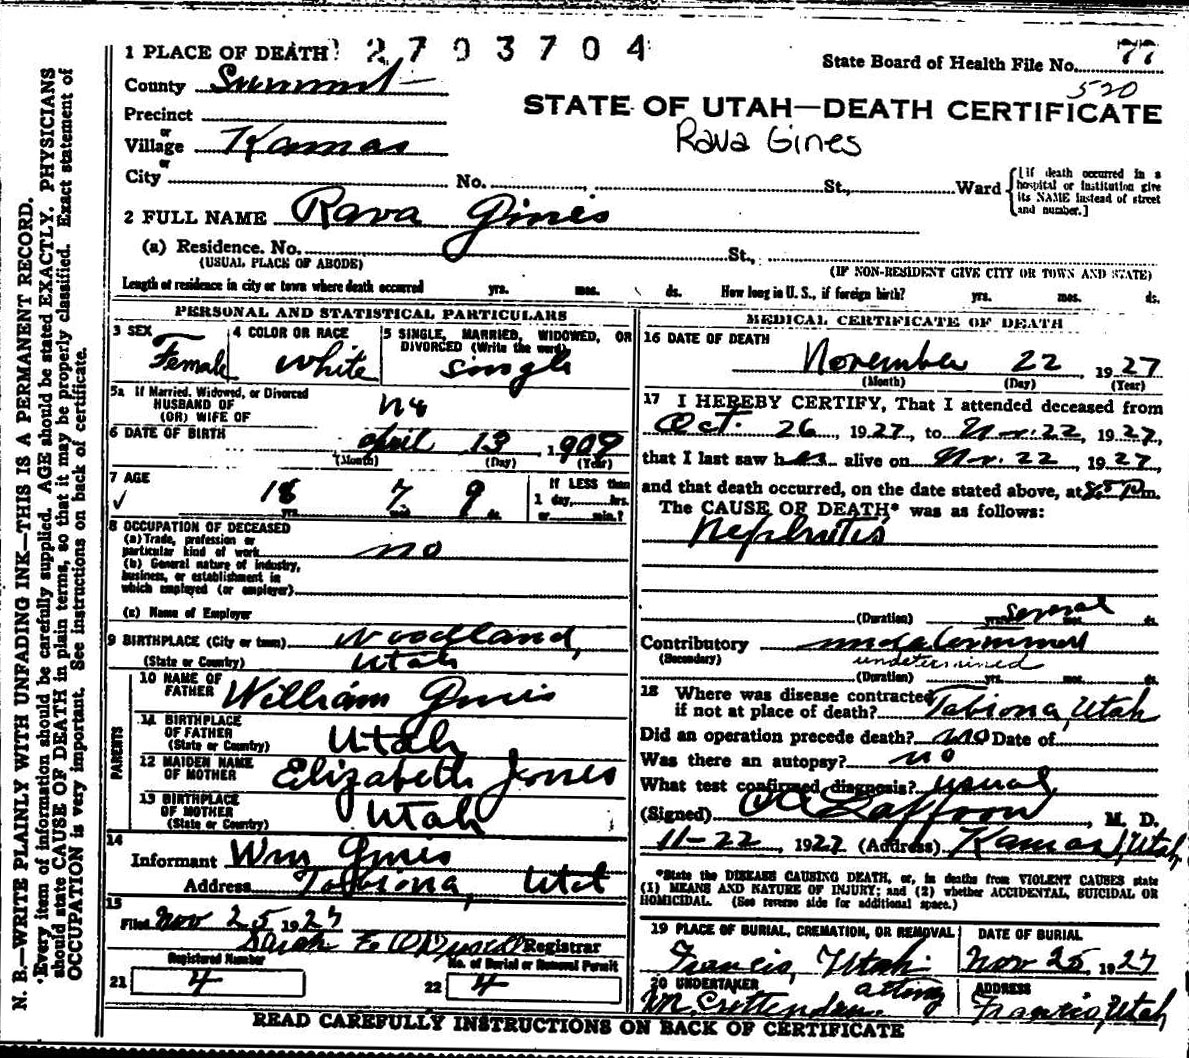 1 PLACE OF DEATH 2703704
State Board of Health File No. 77
520
County Summit
STATE OF UTAH—DEATH CERTIFICATE
Rava Gines
Precinct
or
Village Kamas
or
City No. St., Ward
[If death occurred in a hospital or institution give its NAME instead of street and number.]
2 FULL NAME Rava Gines
(a) Residence. No. St.,
(USUAL PLACE OF ABODE) (IF NON-RESIDENT GIVE CITY OR TOWN AND STATE)
Length of residence in city or town where death occurred yrs. mos. ds. How long in U. S., if foreign birth? yrs. mos. ds.
PERSONAL AND STATISTICAL PARTICULARS
3 SEX Female
4 COLOR OR RACE White
5 SINGLE, MARRIED, WIDOWED, OR DIVORCED (Write the word) single
5a If Married, Widowed, or Divorced
HUSBAND OF
(OR) WIFE OF no
6 DATE OF BIRTH April 13, 1909
(Month) (Day) (Year)
7 AGE 18 7 9
yrs. mos. ds.
If LESS than
1 day, hrs.
or min.?
8 OCCUPATION OF DECEASED
(a) Trade, profession or
particular kind of work no
(b) General nature of industry,
business, or establishment in
which employed (or employer)
(c) Name of Employer
9 BIRTHPLACE (City or town) Woodland,
(State or Country) Utah
PARENTS
10 NAME OF FATHER William Gines
11 BIRTHPLACE OF FATHER (State or Country) Utah
12 MAIDEN NAME OF MOTHER Elizabeth Jones
13 BIRTHPLACE OF MOTHER (State or Country) Utah
14
Informant Wm Gines
Address Tabiona, Utah
15
Filed Nov 25 1927
Sarah E. Registrar
Registered Number No. of Burial or Removal Permit
21 4 22 4
MEDICAL CERTIFICATE OF DEATH
16 DATE OF DEATH
November 22 1927
(Month) (Day) (Year)
17 I HEREBY CERTIFY, That I attended deceased from
Oct. 26, 1927, to Nov. 22, 1927,
that I last saw her alive on Nov. 22, 1927,
and that death occurred, on the date stated above, at m.
The CAUSE OF DEATH* was as follows:
Nephritis
(Duration) yrs. several mos. ds.
Contributory undetermined
(Secondary) undetermined
(Duration) yrs. mos. ds.
18 Where was disease contracted
if not at place of death? Tabiona, Utah
Did an operation precede death? no Date of
Was there an autopsy? no
What test confirmed diagnosis? usual
(Signed) Laffoon, M. D.
11-22, 1927 (Address) Kamas, Utah
*State the DISEASE CAUSING DEATH, or, in deaths from VIOLENT CAUSES state
(1) MEANS AND NATURE OF INJURY; and (2) whether ACCIDENTAL, SUICIDAL OR
HOMICIDAL. (See reverse side for additional space.)
19 PLACE OF BURIAL, CREMATION, OR REMOVAL DATE OF BURIAL
Francis, Utah Nov 25, 1927
20 UNDERTAKER acting ADDRESS
Wm. Crittenden Francis, Utah
READ CAREFULLY INSTRUCTIONS ON BACK OF CERTIFICATE
N. B.—WRITE PLAINLY WITH UNFADING INK—THIS IS A PERMANENT RECORD.
Every item of information should be carefully supplied. AGE should be stated EXACTLY. PHYSICIANS
should state CAUSE OF DEATH in plain terms, so that it may be properly classified. Exact statement of
OCCUPATION is very important. See instructions on back of certificate.